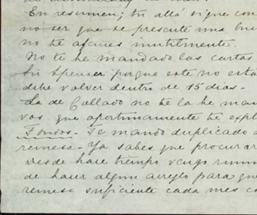 En resumen; tu allá sigue con
no ser que se presente una bue
no te afanes inutilmente.
No te he mandado las cartas
Sir Spencer porque este no esta
debe volver dentro de 15 dias.
La de Collado no te la he man
vos que oportunamente te expl
Fondos. Te mando duplicado d
remesa. Ya sabes que procurar
Desde hace tiempo vengo rumi
de hacer algun arreglo para que
remese suficiente cada mes co